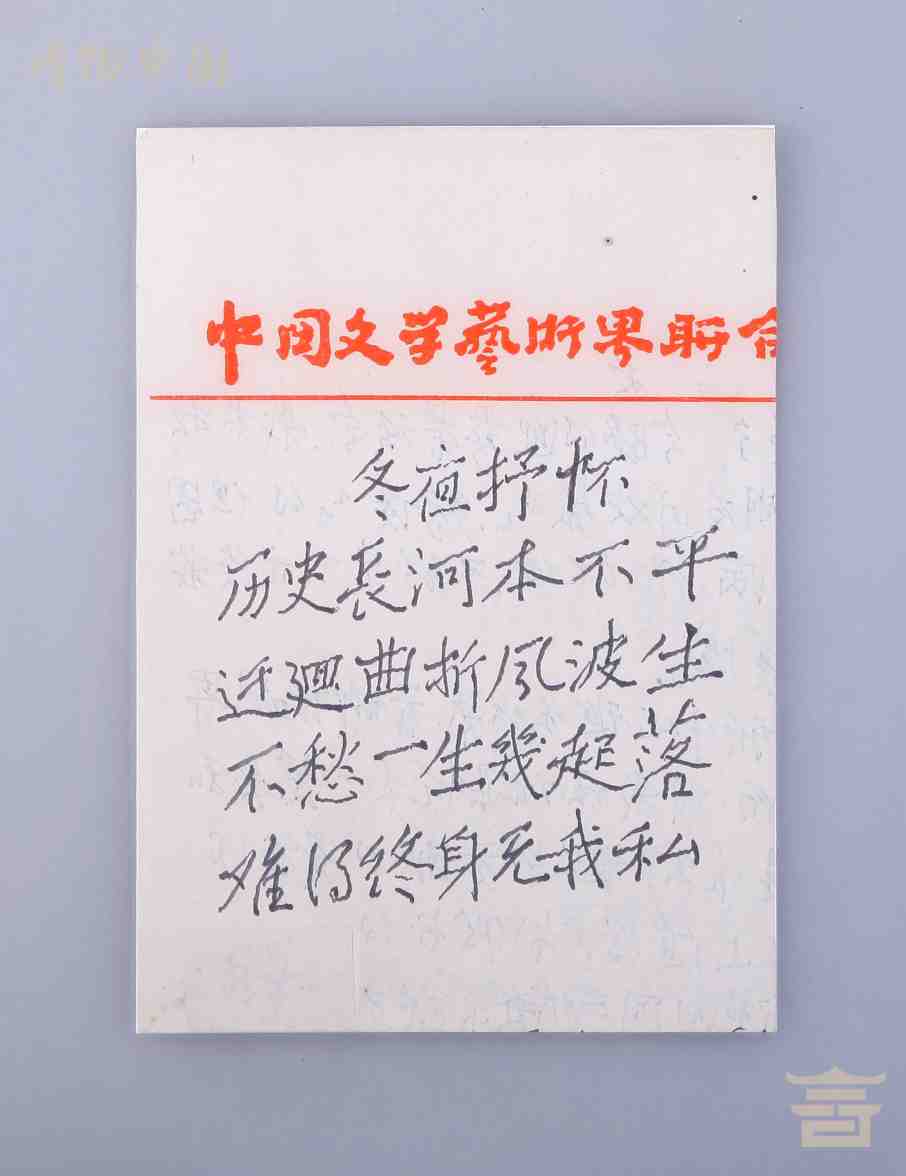 中国文学藝術界联合
冬夜抒怀
历史長河本不平
迂廻曲折风波生
不愁一生幾起落
难得终身无我私